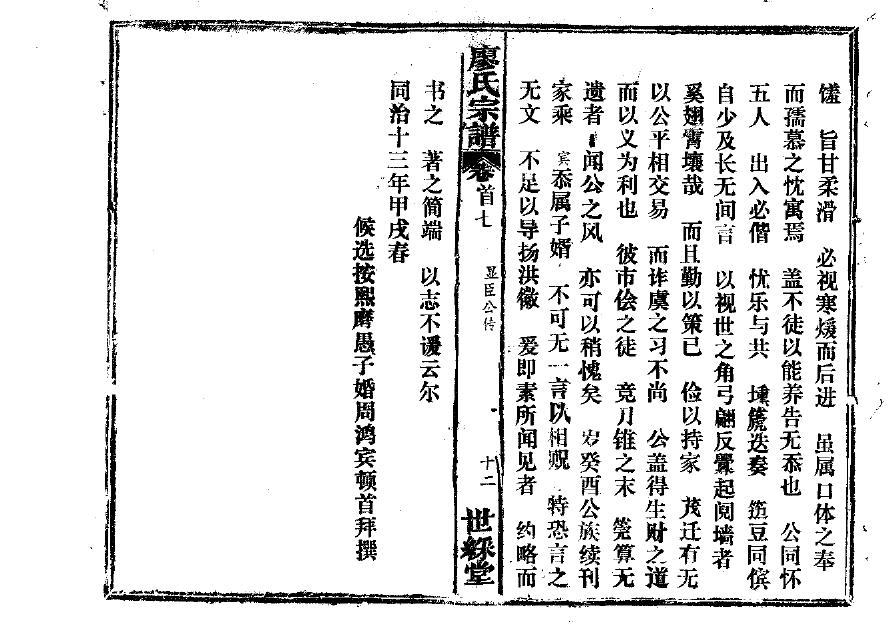 馐 旨甘柔滑 必视寒煖而后进 虽属口体之奉
而孺慕之忱寓焉 盖不徒以能养告无忝也 公同怀
五人 出入必偕 忧乐与共 埙篪迭奏 笾豆同傧
自少及长无间言 以视世之角弓翩反衅起阋墙者
奚翅霄壤哉 而且勤以策己 俭以持家 茂迁有无
以公平相交易 而诈虞之习不尚 公盖得生财之道
而以义为利也 彼市侩之徒 竞刀锥之末 筦算无
遗者 闻公之风 亦可以稍愧矣 岁癸酉公族续刊
家乘 宾忝属子婿 不可无一言以相贶 特恐言之
无文 不足以导扬洪徽 爰即素所闻见者 约略而
廖氏宗譜 卷首七 显臣公传 十二 世綵堂
书之 著之简端 以志不谖云尔
同治十三年甲戌春
候选按照磨愚子婿周鸿宾顿首拜撰